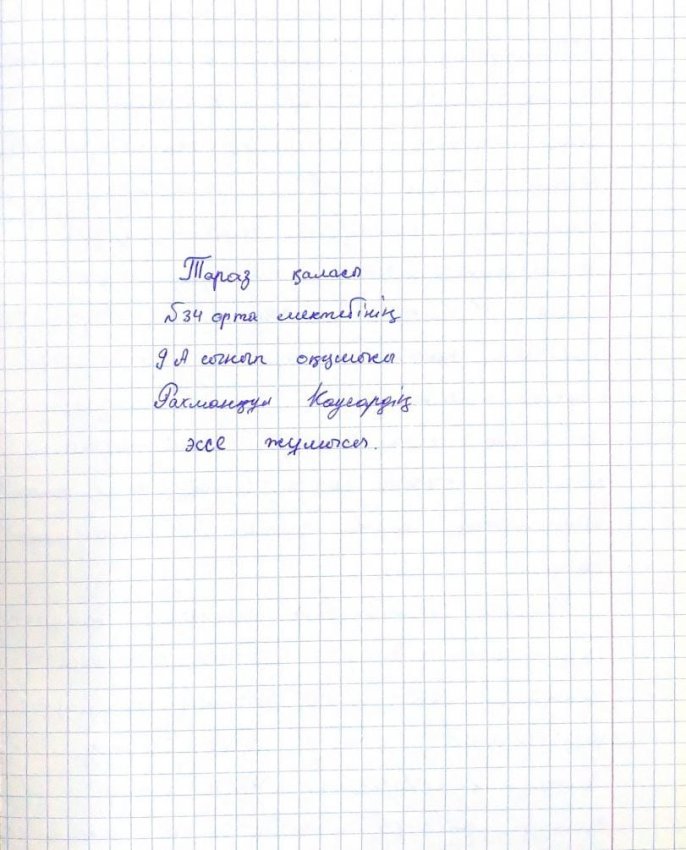 Тараз қаласы
№34 орта мектебінің
9 А сынып оқушысы
Рахманқул Каусардің
эссе жұмысы.